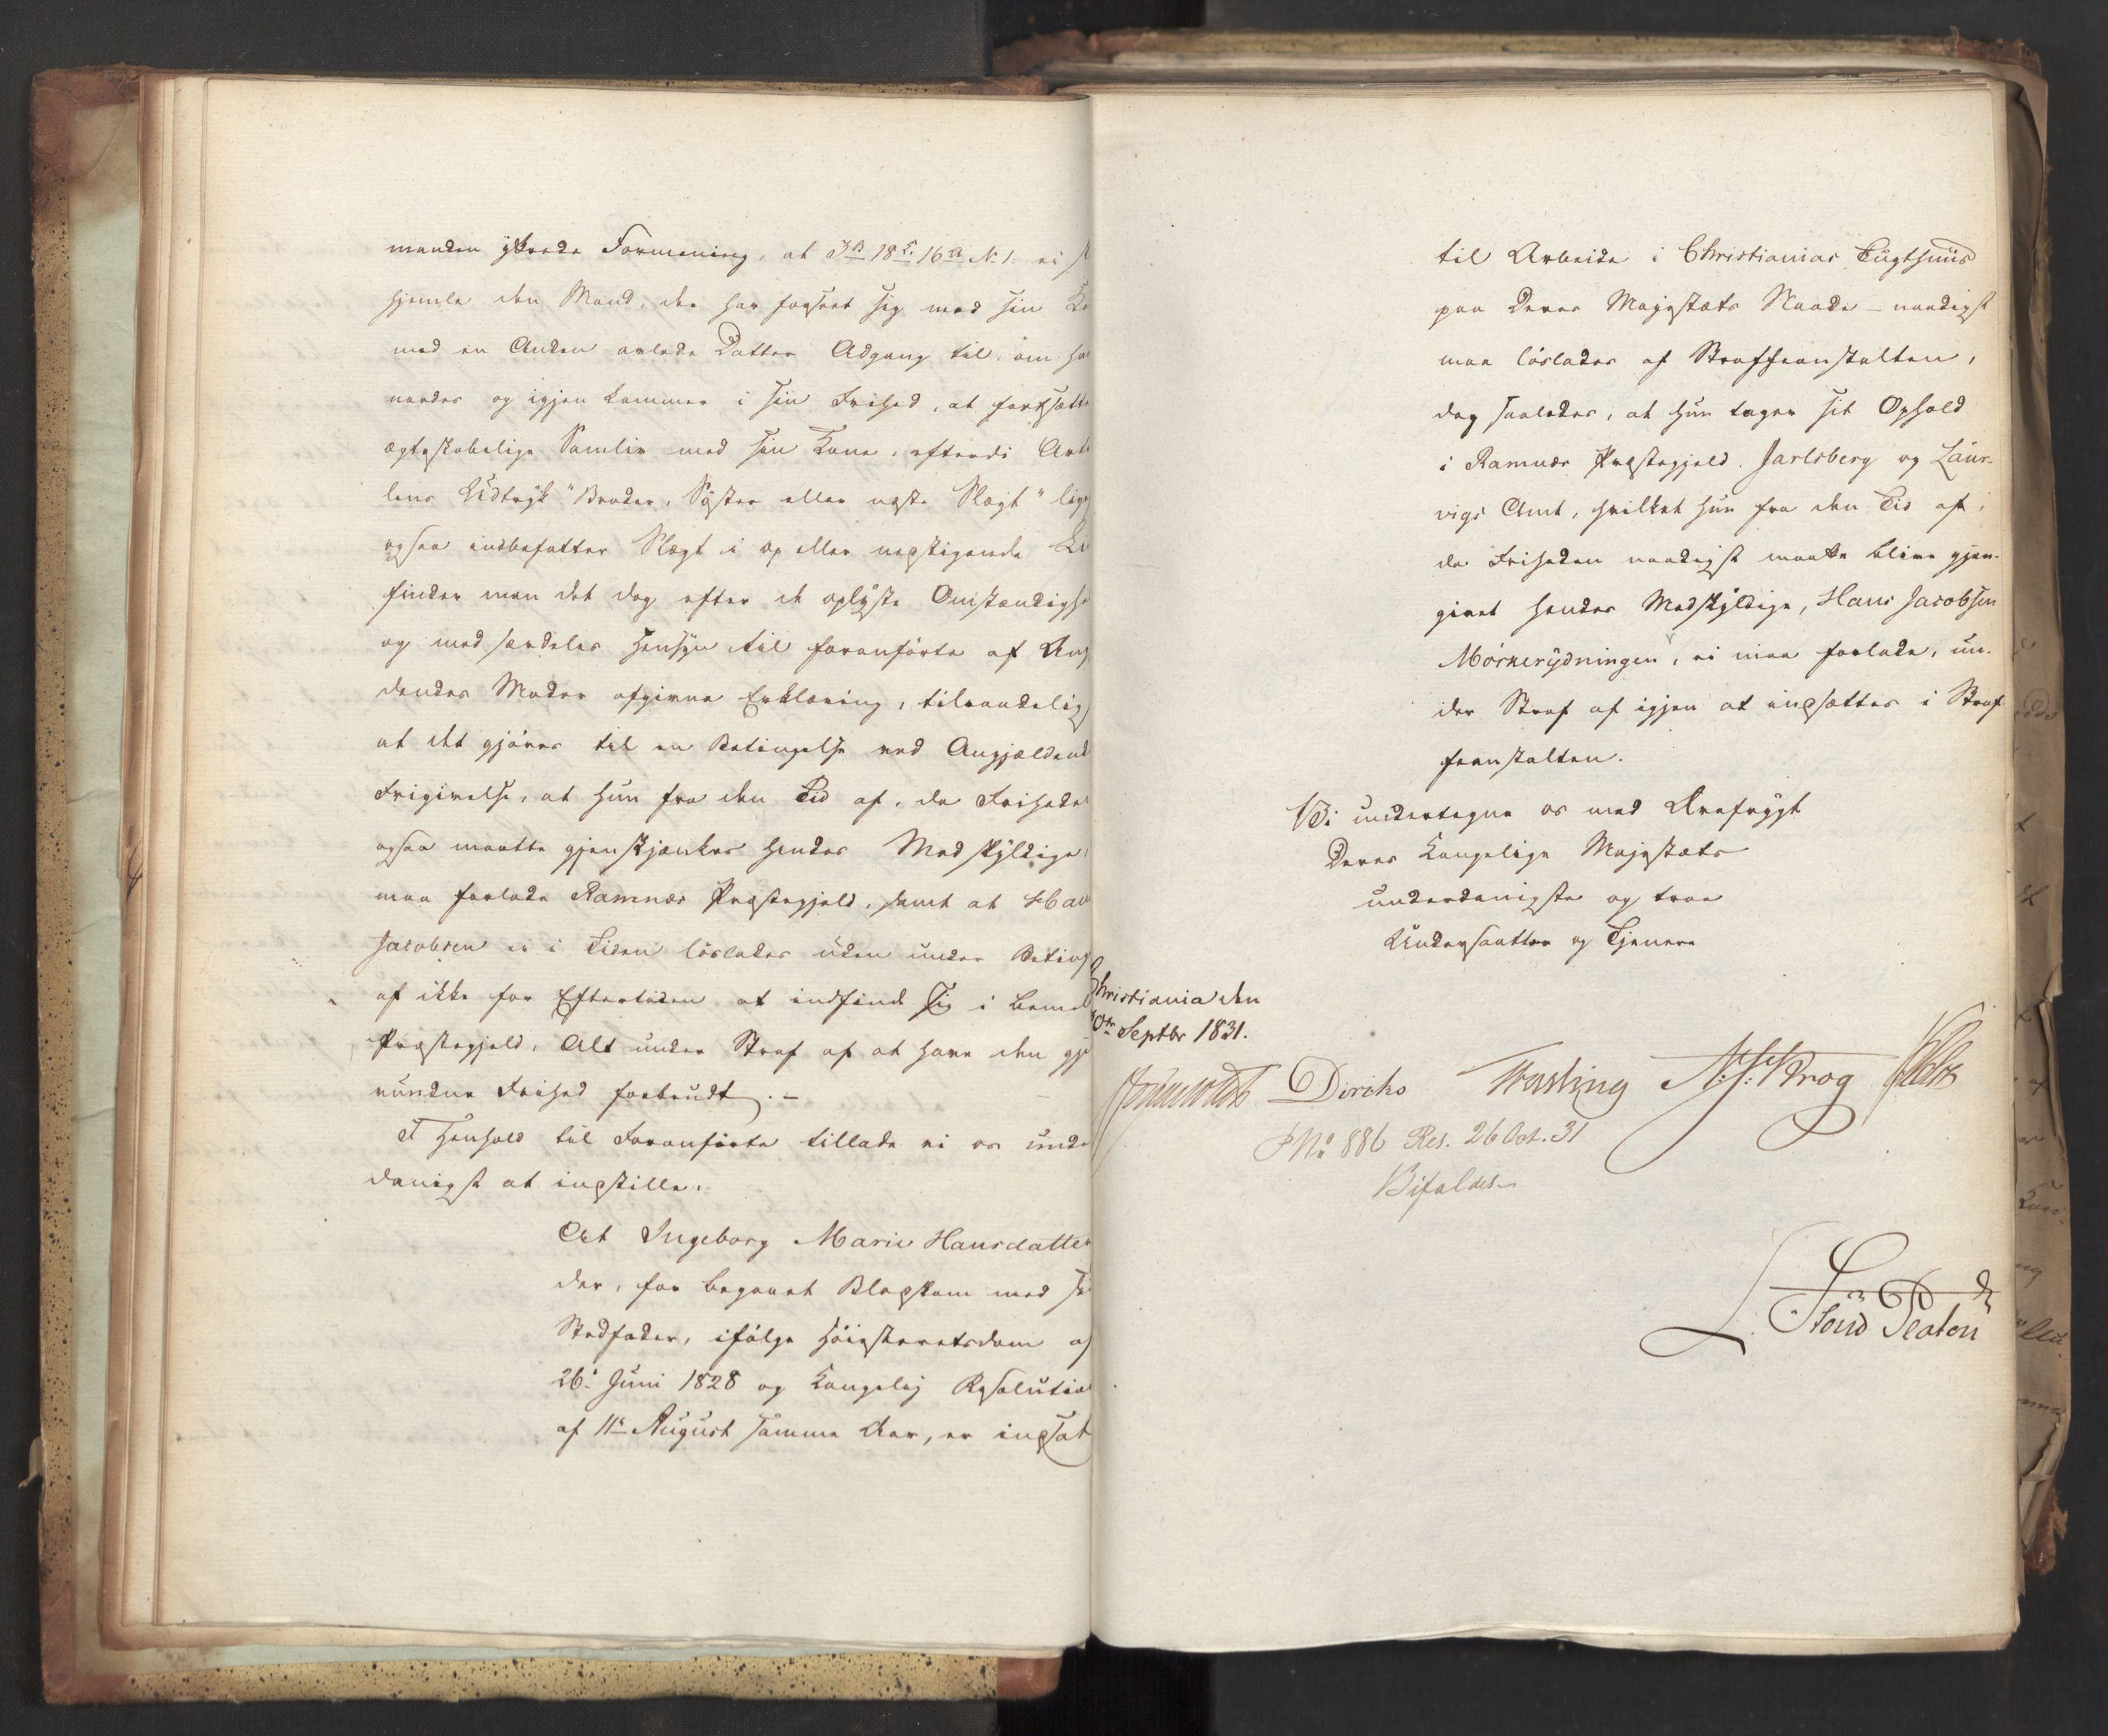 manden yttrede Formening, at 3B 18C. 16A N. 1. ei
hjemle den Mand, der har forseet sig med sin
med en Anden avlede Datter Adgang til, om han
naades og igjen kommer i sin Frihed, at fortsætte
ægteskabelige Samliv med sin Kone, efterdi Artik
lens Udtryk "Broder, Syster eller neste Slægt"
ogsaa indbefatter Slægt i op eller nedstigende
finder man det dog efter de oplyste Omstændighe
og med særdeles Hensyn til foranførte af Ang
dendes Moder afgivne Erklæring, tilraadelig
at det gjøres til en Betingelse ved Angjældend
Frigivelse, at hun fra den Tid af, da Friheden
ogsaa maatte gjenskjænkes hendes Medskyldige
maa forlade Ramnæs Præstegjeld, samt at Hans
Jacobsen ei i Tiden løslades uden under Beting
af ikke for Eftertiden at indfinde sig i bemel
Præstegjeld, Alt under Straf af at have den gje
vundne Frihed forbrudt. -
I Henhold til Foranførte tillade vi os unde
danigst at indstille:
At Ingeborg Marie Hansdatter
der, for begaaet Blodskam med
Stedfader, ifølge Høiesteretsdom af
26. Juni 1828 og Kongelig Resolution
af 11. August samme Aar, er indsat
til Arbeide i Christianias Tugthuus
paa Deres Majestæts Naade - naadigst
maa løslades af Straffeanstalten,
dog saaledes, at hun tager sit Ophold
i Ramnæs Præstegjeld, Jarlsberg og Laur-
vigs Amt, hvilket hun fra den Tid af,
da Friheden naadigst maatte blive gjen-
givet hendes Medskyldige, Hans Jacobsen
Mørkerydningen, ei maa forlade, un-
der Straf af igjen at indsættes i Straf
feanstalten.
Vi undertegne os med Ærefrygt
Deres Kongelige Majestæts
underdanigste og troe
Undersaatter og Tjenere
Christiania den
Septbr 1831.
Diriks Vogt Krog
P No 886 Res. 26 Oct. 31
Bifaldes